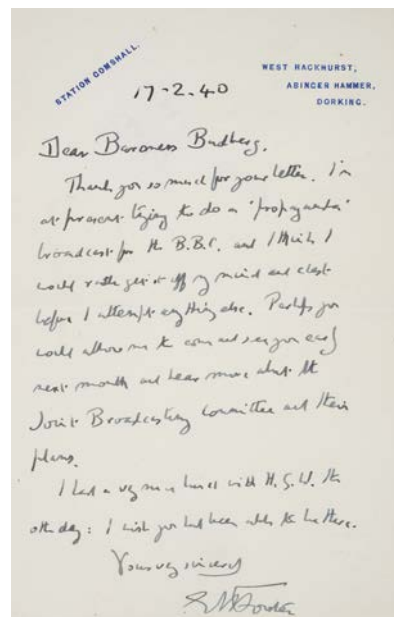 STATION GOMSHALL.
WEST HACKHURST,
ABINGER HAMMER,
DORKING.
17-2.40
Dear Baroness Budberg.
Thank you so much for your letter. I'm
at present trying to do a 'propaganda'
broadcast for the B.B.C. and I think I
could rather get it off my mind and chest
before I attempt anything else. Perhaps you
could allow me to come and see you early
next month and hear more about the
Joint Broadcasting Committee and their
plans.
I had a very nice lunch with H.G.W. the
other day: I wish you had been able to be there.
Yours very sincerely
EMForster